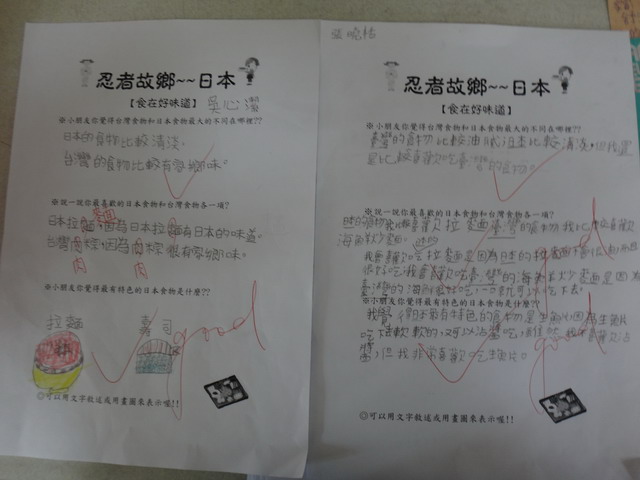 忍者故鄉~~日本
【食在好味道】
吳心瀠
※小朋友你覺得台灣食物和日本食物最大的不同在哪裡??
日本的食物比較清淡,
台灣的食物比較有家鄉味。
※說一說你最喜歡的日本食物和台灣食物各一項?
日本拉麵,因為日本拉麵有日本的味道。
台灣肉粽,因為肉粽很有家鄉味。
肉 肉
※小朋友你覺得最有特色的日本食物是什麼??
拉麵 壽司
good
◎可以用文字敘述或用畫圖來表示喔!!
忍者故鄉~~日本
【食在好味道】
※小朋友你覺得台灣食物和日本食物最大的不同在哪裡??
臺灣的食物比較油膩日本比較清淡,但我還
是比較喜歡吃臺灣的食物。
※說一說你最喜歡的日本食物和台灣食物各一項?
日本的食物我喜歡拉麵臺灣的食物我比較喜歡
海鮮炒麵。
我會喜歡吃拉麵是因為日本的拉麵
很好吃,我會喜歡吃臺灣的海鮮炒麵是因為
臺灣的海鮮很好吃,
※小朋友你覺得最有特色的日本食物是什麼??
我覺得日本最有特色的食物是生魚片因為生魚片
吃起來軟軟的,又可以沾醬吃,雖然我不喜歡沾
醬,但我非常喜歡吃生魚片。
good
◎可以用文字敘述或用畫圖來表示喔!!